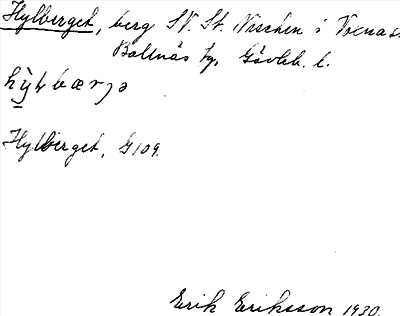 Hylberget, berg SV. St. Nischen i Voxna s.
Bollnäs tg, Gävleb. l.
hy̱l bærjə
Hylberget, G 109.
Erik Eriksson 1930.